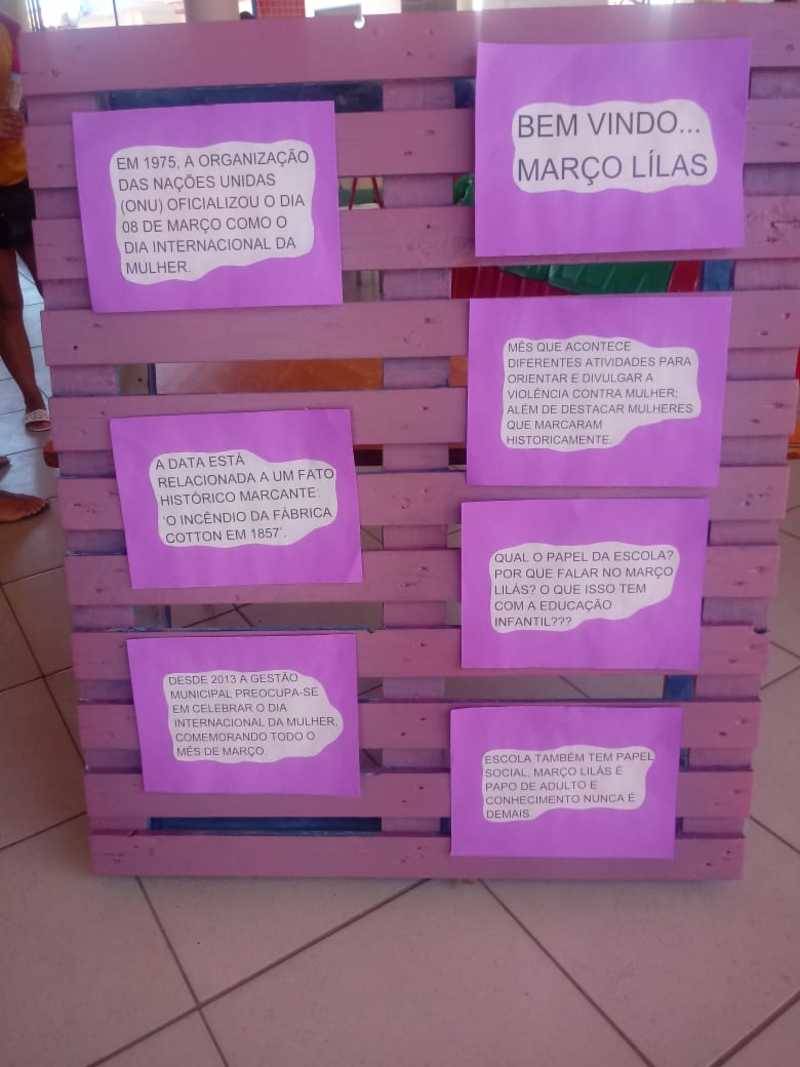 BEM VINDO...
MARÇO LÍLAS
EM 1975, A ORGANIZAÇÃO
DAS NAÇÕES UNIDAS
(ONU) OFICIALIZOU O DIA
08 DE MARÇO COMO O
DIA INTERNACIONAL DA
MULHER.
MÊS QUE ACONTECE
DIFERENTES ATIVIDADES PARA
ORIENTAR E DIVULGAR A
VIOLÊNCIA CONTRA MULHER;
ALÉM DE DESTACAR MULHERES
QUE MARCARAM
HISTORICAMENTE.
A DATA ESTÁ
RELACIONADA A UM FATO
HISTÓRICO MARCANTE:
'O INCÊNDIO DA FÁBRICA
COTTON EM 1857'.
QUAL O PAPEL DA ESCOLA?
POR QUE FALAR NO MARÇO
LILÁS? O QUE ISSO TEM
COM A EDUCAÇÃO
INFANTIL???
DESDE 2013 A GESTÃO
MUNICIPAL PREOCUPA-SE
EM CELEBRAR O DIA
INTERNACIONAL DA MULHER,
COMEMORANDO TODO O
MÊS DE MARÇO.
ESCOLA TAMBÉM TEM PAPEL
SOCIAL, MARÇO LILÁS É
PAPO DE ADULTO E
CONHECIMENTO NUNCA É
DEMAIS.